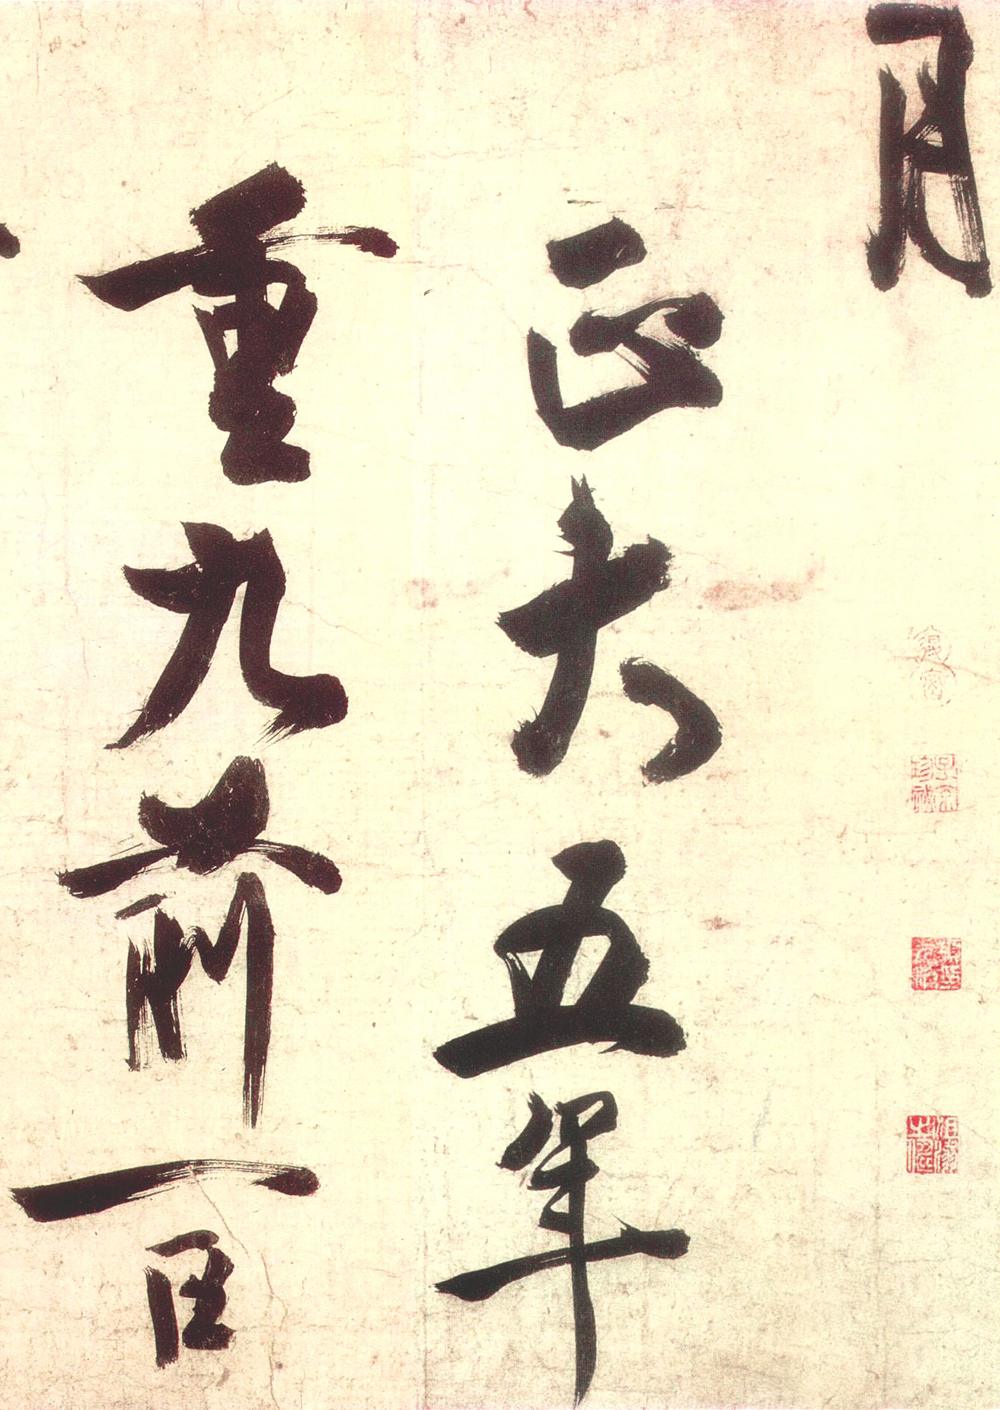 月
正大五年
重九前一日